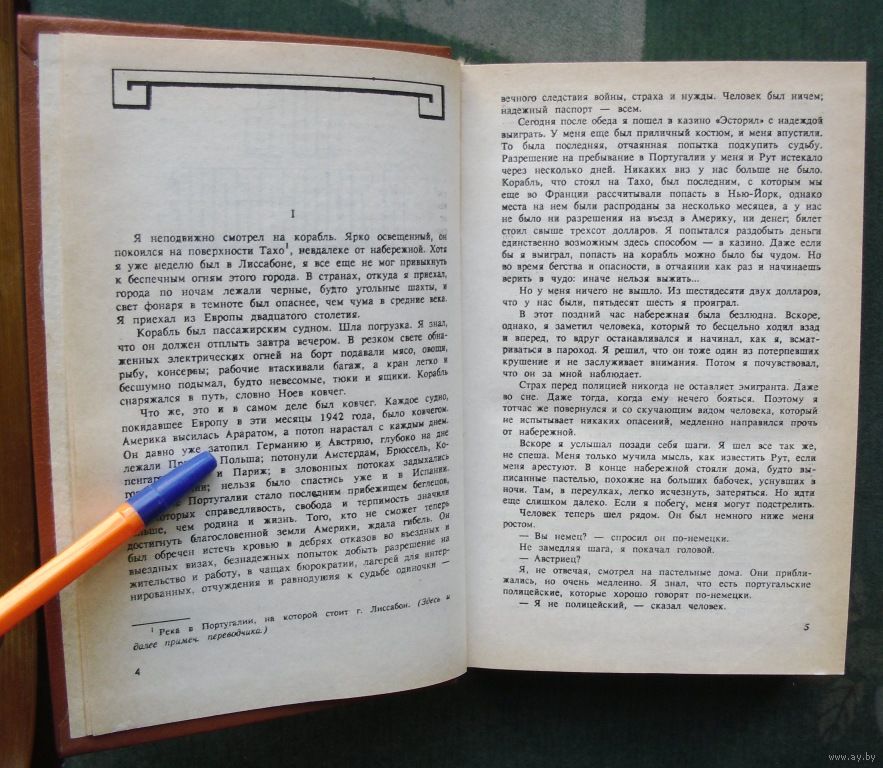 I
Я неподвижно смотрел на корабль. Ярко освещенный, он
покоился на поверхности Тахо¹, невдалеке от набережной. Хотя
я уже неделю был в Лиссабоне, я все еще не мог привыкнуть
к беспечным огням этого города. В странах, откуда я приехал,
города по ночам лежали черные, будто угольные шахты, и
свет фонаря в темноте был опаснее, чем чума в средние века.
Я приехал из Европы двадцатого столетия.
Корабль был пассажирским судном. Шла погрузка. Я знал,
что он должен отплыть завтра вечером. В резком свете обна-
женных электрических огней на борт подавали мясо, овощи,
рыбу, консервы; рабочие втаскивали багаж, а кран легко и
бесшумно подымал, будто невесомые, тюки и ящики. Корабль
снаряжался в путь, словно Ноев ковчег.
Что же, это и в самом деле был ковчег. Каждое судно,
покидавшее Европу в эти месяцы 1942 года, было ковчегом.
Америка высилась Араратом, а потоп нарастал с каждым днем.
Он давно уже затопил Германию и Австрию, глубоко на дне
лежали Польша; потонули Амстердам, Брюссель, Ко-
пенгаг и Париж; в зловонных потоках задыхались
го нельзя было спастись уже и в Испании.
Португалии стало последним прибежищем беглецов,
которых справедливость, свобода и терпимость значили
больше, чем родина и жизнь. Того, кто не сможет теперь
достигнуть благословенной земли Америки, ждала гибель. Он
был обречен истечь кровью в дебрях отказов во въездных и
выездных визах, безнадежных попыток добыть разрешение на
жительство и работу, в чащах бюрократии, лагерей для интер-
нированных, отчуждения и равнодушия к судьбе одиночки —
¹ Река в Португалии, на которой стоит г. Лиссабон. (Здесь и
далее примеч. переводчика.)
4
вечного следствия войны, страха и нужды. Человек был ничем;
надежный паспорт — всем.
Сегодня после обеда я пошел в казино «Эсторил» с надеждой
выиграть. У меня еще был приличный костюм, и меня впустили.
То была последняя, отчаянная попытка подкупить судьбу.
Разрешение на пребывание в Португалии у меня и Рут истекало
через несколько дней. Никаких виз у нас больше не было.
Корабль, что стоял на Тахо, был последним, с которым мы
еще во Франции рассчитывали попасть в Нью-Йорк, однако
места на нем были распроданы за несколько месяцев, а у нас
не было ни разрешения на въезд в Америку, ни денег; билет
стоил свыше трехсот долларов. Я попытался раздобыть деньги
единственно возможным здесь способом — в казино. Даже если
бы я выиграл, попасть на корабль можно было бы чудом. Но
во время бегства и опасности, в отчаянии как раз и начинаешь
верить в чудо: иначе нельзя выжить...
Но у меня ничего не вышло. Из шестидесяти двух долларов,
что у нас были, пятьдесят шесть я проиграл.
В этот поздний час набережная была безлюдна. Вскоре,
однако, я заметил человека, который то бесцельно ходил взад
и вперед, то вдруг останавливался и начинал, как я, всмат-
риваться в пароход. Я решил, что он тоже один из потерпевших
крушение и не заслуживает внимания. Потом я почувствовал,
что он за мной наблюдает.
Страх перед полицией никогда не оставляет эмигранта. Даже
во сне. Даже тогда, когда ему нечего бояться. Поэтому я
тотчас же повернулся и со скучающим видом человека, который
не испытывает никаких опасений, медленно направился прочь
от набережной.
Вскоре я услышал позади себя шаги. Я шел все так же,
не спеша. Меня только мучила мысль, как известить Рут, если
меня арестуют. В конце набережной стояли дома, будто вы-
писанные пастелью, похожие на больших бабочек, уснувших в
ночи. Там, в переулках, легко исчезнуть, затеряться. Но идти
еще слишком далеко. Если я побегу, меня могут подстрелить.
Человек теперь шел рядом. Он был немного ниже меня
ростом.
— Вы немец? — спросил он по-немецки.
Не замедляя шага, я покачал головой.
— Австриец?
Я, не отвечая, смотрел на пастельные дома. Они прибли-
жались, но очень медленно. Я знал, что есть португальские
полицейские, которые хорошо говорят по-немецки.
— Я не полицейский, — сказал человек.
5
www.ay.by